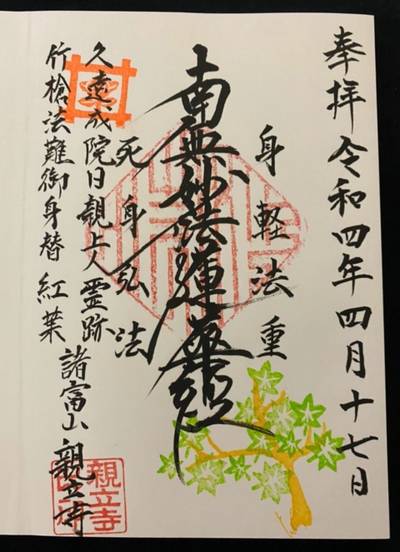 奉拝 令和四年四月十七日
身軽法重
南無妙法蓮華経
死身弘法
久遠成院日親上人霊跡
竹槍法難御身替 紅葉
諸富山 親立寺
親立寺